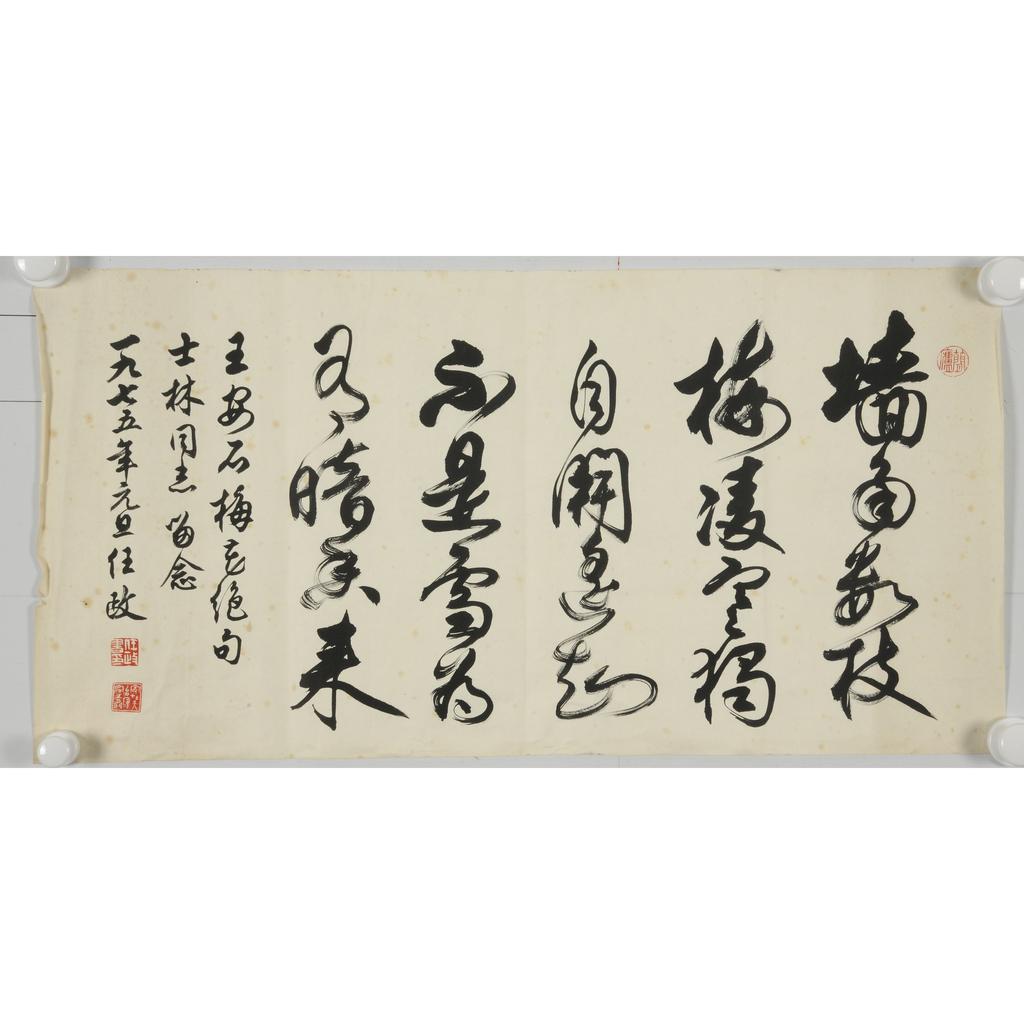 墙角数枝
梅凌寒獨
自開遥知
不是雪为
有暗香来
王安石梅花绝句
士林同志留念
一九七五年元旦任政